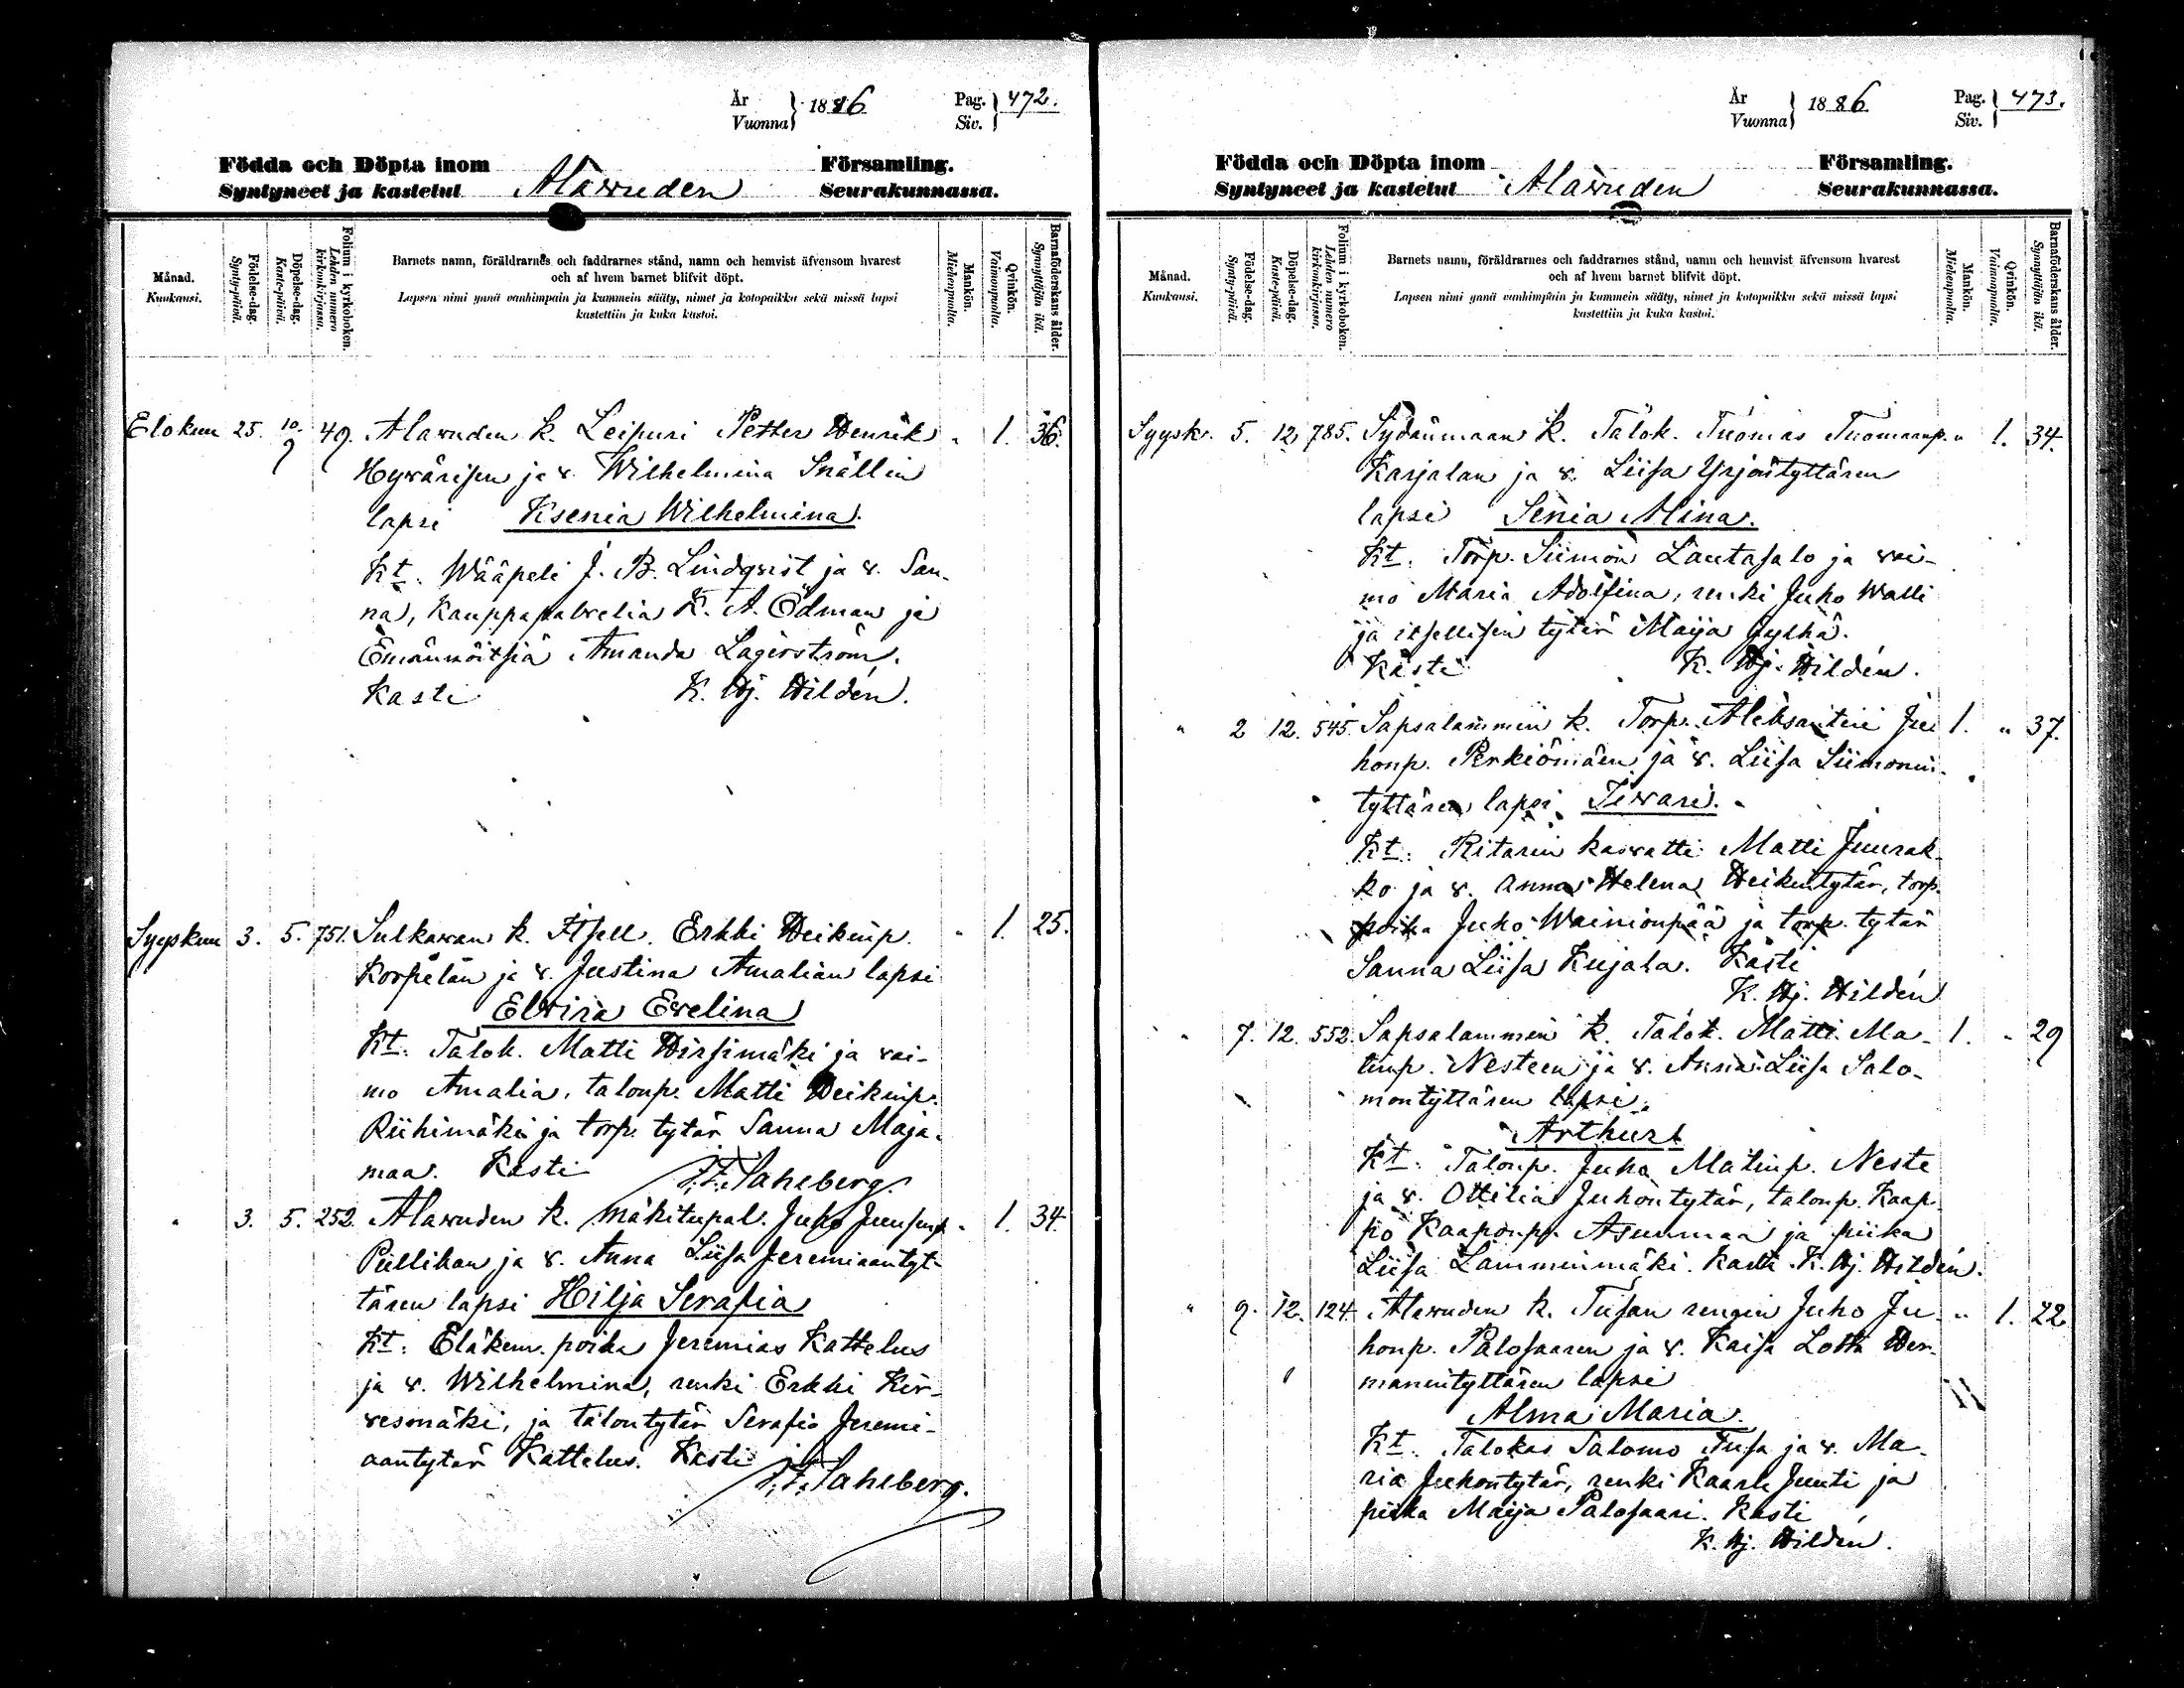 År
Vuonna } 1886 Pag.
Siv. } 472.
Födda och Döpta inom Församling.
Syntyneet ja kastetut Alawuden Seurakunnassa.
Månad.
Kuukausi.
Födelse-dag.
Synty-päivä.
Döpelse-dag.
Kaste-päivä.
Folium i kyrkoboken.
Lehden numero kirkonkirjassa.
Barnets namn, föräldrarnes och faddrarnes stånd, namn och hemvist äfvensom hvarest
och af hvem barnet blifvit döpt.
Lapsen nimi ynnä vanhimpain ja kummein sääty, nimet ja kotopaikka sekä missä lapsi
kastettiin ja kuka kastoi.
Mankön.
Miehenpuolta.
Qvinkön.
Vaimonpuolta.
Barnaföderskans ålder.
Synnyttäjän ikä.
Elokuu 25. 10/9 49. Alawuden k. Leipuri Petter Henrik " 1. 36.
Hywärisen ja v. Wilhelmina Snällin
lapsi Ksenia Wilhelmina.
Kt. Wääpeli J. B. Lindqvist ja v. San-
na, Kauppapalvelia K. A. Ödman ja
Emännöitsiä Amanda Lagerström.
Kasti K. Hj. Hildén.
Syyskuu 3. 5. 751. Sulkawan k. Itsell. Erkki Heikinp. " 1. 25.
Korpelan ja v. Justina Amalian lapsi
Elviira Evelina
Kt. Talok. Matti Hirsimäki ja vai-
mo Amalia, talonp. Matti Heikinp.
Riihimäki ja torp. tytär Sanna Maja-
maa. Kasti J. F. Sahlberg.
" 3. 5. 252. Alawuden k. Mäkitupal. Juho Juusenp. " 1. 34.
Pullikan ja v. Anna Liisa Jeremiaantyt-
tären lapsi Hilja Serafia
Kt. Eläkem. poika Jeremias Kattelus
ja v. Wilhelmina, renki Erkki Kir-
vesmäki, ja talontytär Serafia Jeremi-
aantytär Kattelus. Kasti
J. F. Sahlberg.
År
Vuonna } 1886 Pag.
Siv. } 473.
Födda och Döpta inom Församling.
Syntyneet ja kastetut Alawuden Seurakunnassa.
Månad.
Kuukausi.
Födelse-dag.
Synty-päivä.
Döpelse-dag.
Kaste-päivä.
Folium i kyrkoboken.
Lehden numero kirkonkirjassa.
Barnets namn, föräldrarnes och faddrarnes stånd, namn och hemvist äfvensom hvarest
och af hvem barnet blifvit döpt.
Lapsen nimi ynnä vanhimpain ja kummein sääty, nimet ja kotopaikka sekä missä lapsi
kastettiin ja kuka kastoi.
Mankön.
Miehenpuolta.
Qvinkön.
Vaimonpuolta.
Barnaföderskans ålder.
Synnyttäjän ikä.
Syysk. 5. 12 785. Sydänmaan k. Talok. Tuomas Tuomaanp. " 1. 34.
Karjalan ja v. Liisa Yrjöntyttären
lapsi Senia Alina.
Kt. Torp. Siimon Lautasalo ja vai-
mo Maria Adolfina, renki Juho Walli
ja itsellisen tytär Maija Jylhä.
Kasti K. Hj. Hildén.
" 2 12. 545. Sapsalammin k. Torp. Aleksanteri Ju 1. " 37.
honp. Perkiömäen ja v. Liisa Siimonin-
tyttären lapsi Iivari.
Kt. Ritarin kasvatti Matti Juurak-
ko ja v. Anna Helena Heikintytär, torp.
poika Juho Wainionpää ja torp. tytär
Sanna Liisa Kujala. Kasti
K. Hj. Hildén
" 7. 12. 552. Sapsalammin k. Talok. Matti Ma- 1. " 29
tinp. Nesteen ja v. Anna Liisa Salo-
montyttären lapsi
Arthur
Kt. Talonp. Juha Matinp. Neste
ja v. Ottilia Juhontytär, talonp. Kaap-
po Kaaponp. Asunmaa ja piika
Liisa Lamminmäki. Kasti K. Hj. Hildén.
" 9. 12. 124. Alawuden k. Tusan rengin Juho Ju- " 1. 22
honp. Palosaaren ja v. Kaisa Lotta Her-
manintyttären lapsi
Alma Maria.
Kt. Talokas Salomo Tusa ja v. Ma-
ria Juhontytär, renki Kaarle Juuti ja
piika Maija Palosaari. Kasti
K. Hj. Hildén.